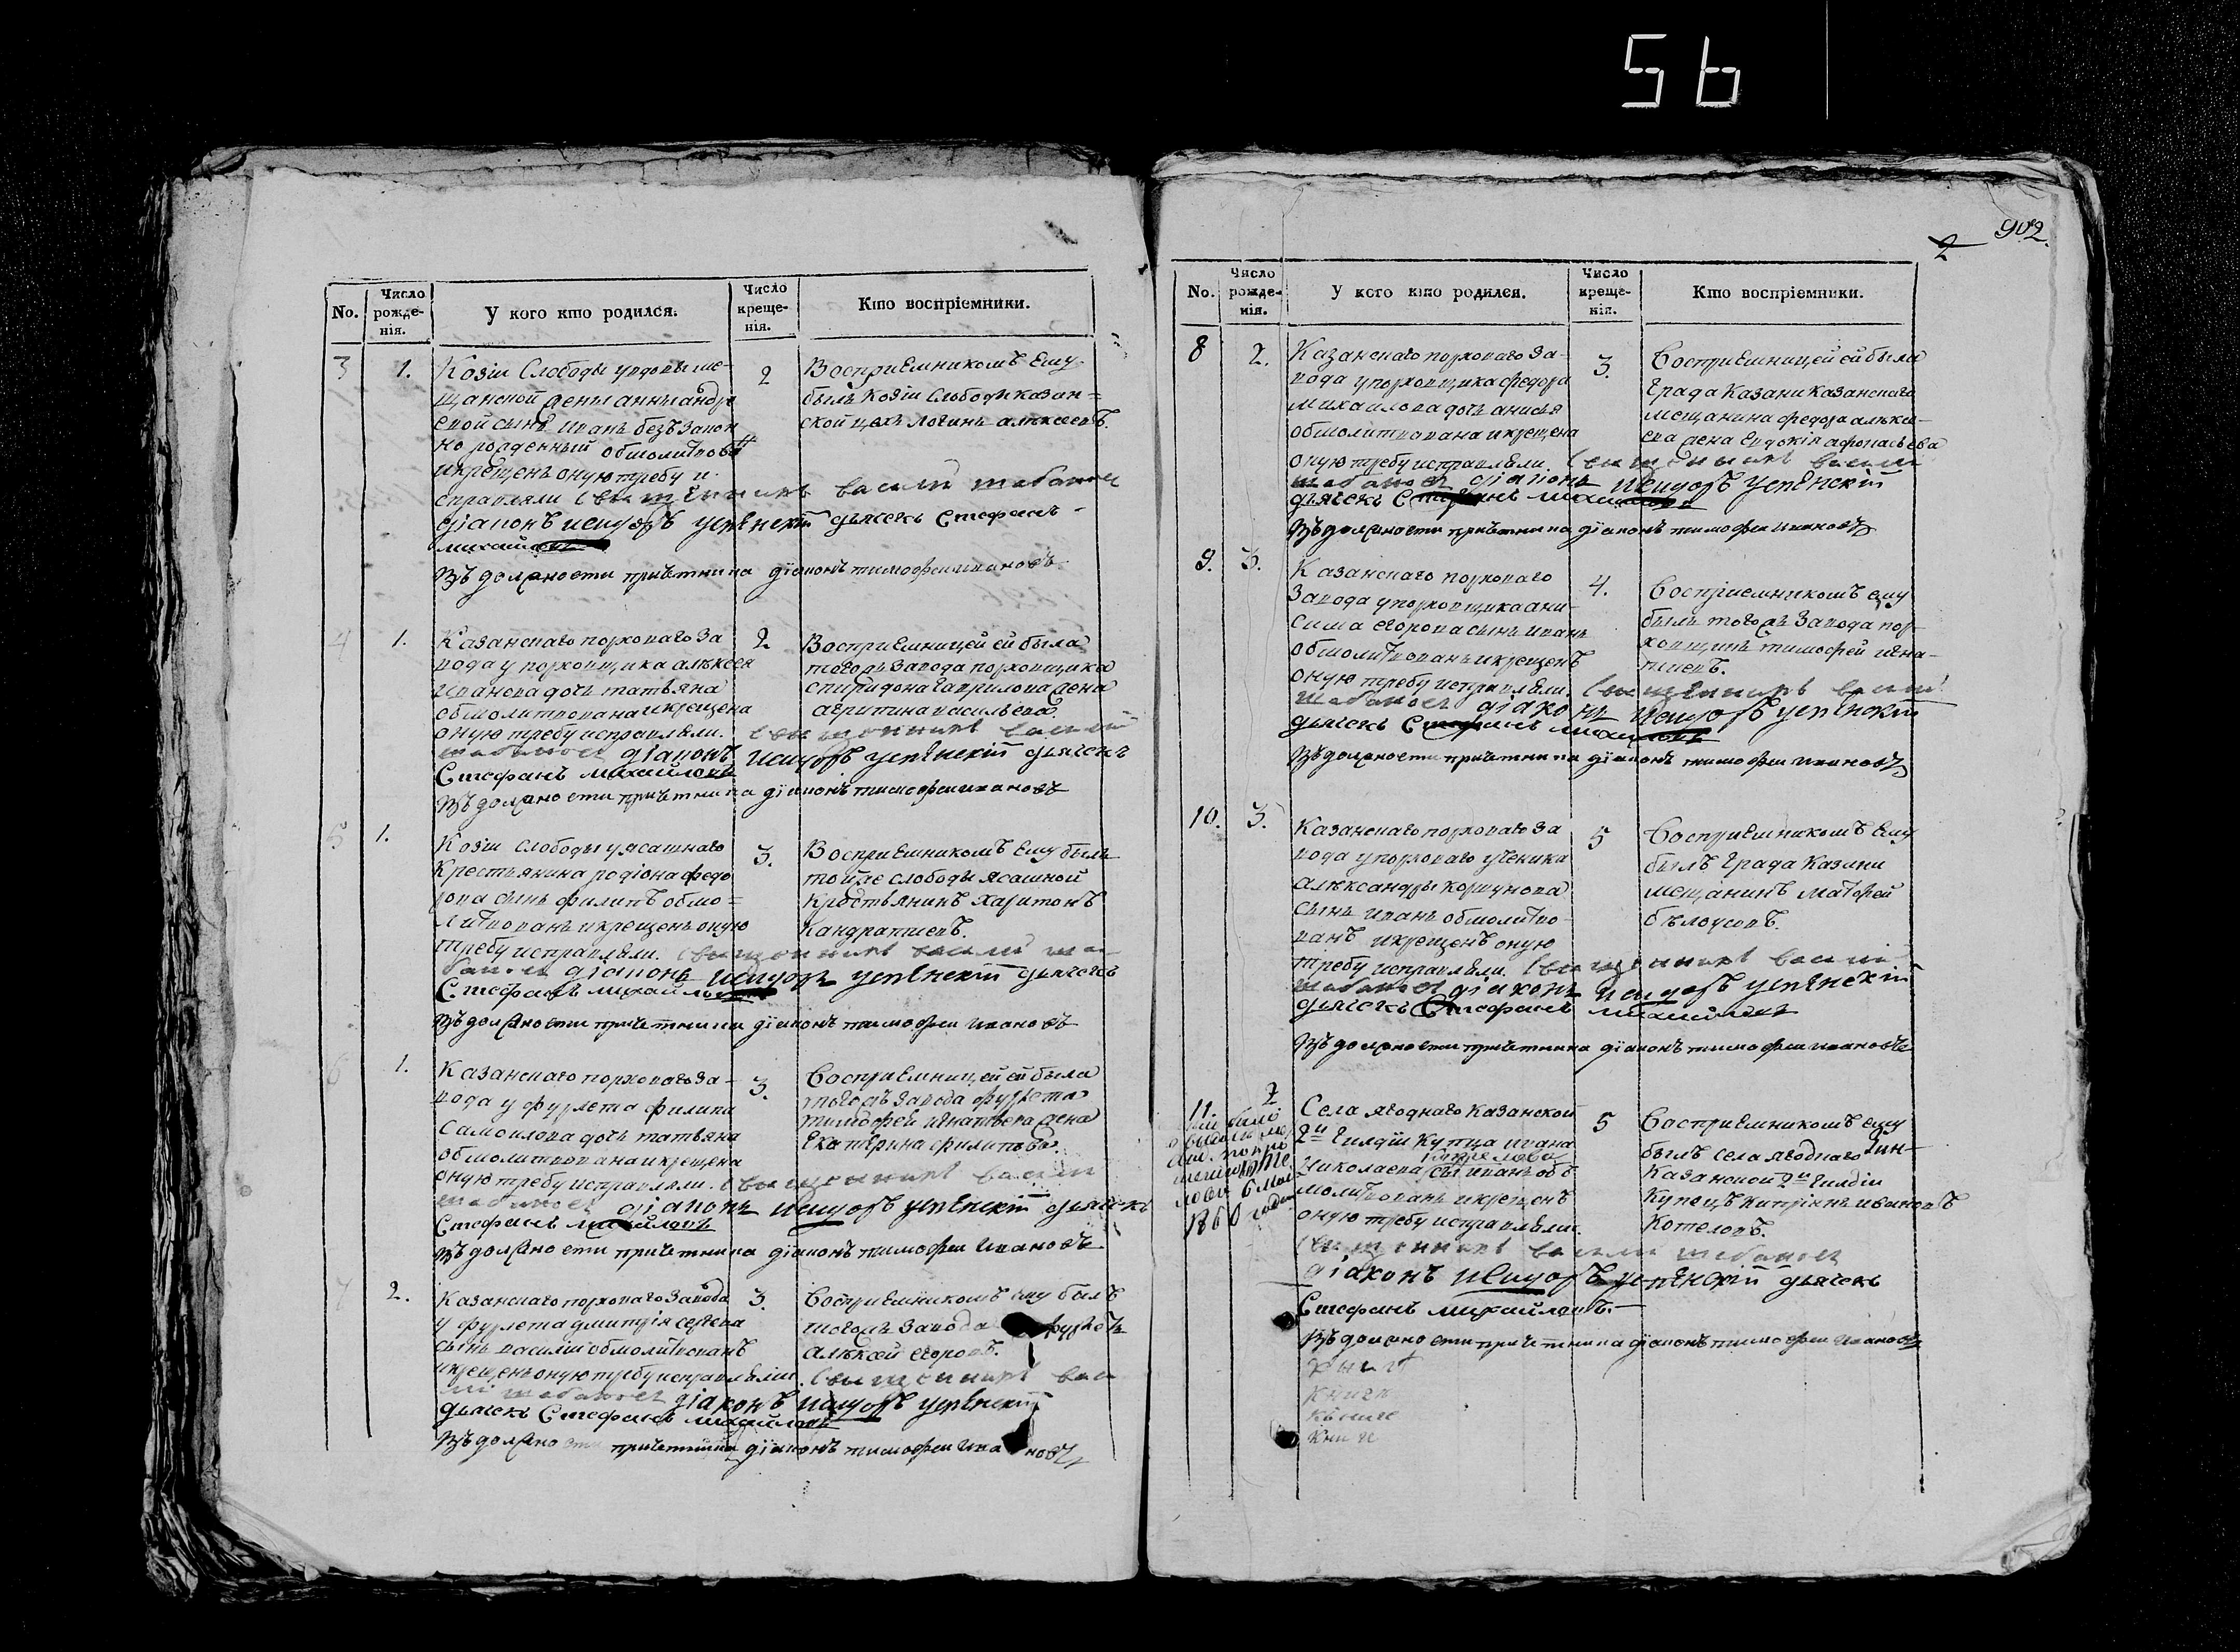 56
No.
Число рожде-нія.
У кого кто родился.
Число креще-нія.
Кто воспріемники.
3
1.
Козіи Слободы у вдовы ме-
щанской жены анны андре
евой сынъ иванъ беззакон
но рожденный обмолитвова
и крещенъ оную требу и
справляли священникъ василий
діаконъ исидоръ успенскій дьячекъ Стефанъ
михайловъ
Въ должности причетника діаконъ тимофеи ивановъ
2
Восприемникомъ ему
былъ Козіи Слободы казан=
ской цеха логинъ алексеевъ.
4
1.
Казанскаго порховаго за
вода у порховщика алексея
иванова дочь татьяна
обмолитвована и крещена
оную требу исправляли. священникъ василий
діаконъ исидоръ успенскій дьячекъ
Стефанъ михайловъ
Въ должности причетника діаконъ тимофеи ивановъ
2
Восприемницей ей была
тогожъ завода порховщика
спиридона гаврилова жена
агрипина васильева.
5
1.
Козіи слободы у ясашнаго
Крестьянина родіона федо
рова сынъ филипъ обмо=
литвованъ и крещенъ оную
требу исправляли. священникъ василий
діаконъ исидоръ успенскій дьячекъ
Стефанъ михайловъ
Въ должности причетника діаконъ тимофеи ивановъ
3.
Восприемникомъ ему былъ
тойже слободы ясашной
Крестьянинъ харитонъ
Кандратиевъ.
6
1.
Казанскаго порховаго за-
вода у фурлета филипа
Самоилова дочь татьяна
обмолитвована и крещена
оную требу исправляли. священникъ василий
діаконъ исидоръ успенскій дьячекъ
Стефанъ михайловъ
Въ должности причетника діаконъ тимофеи ивановъ
3.
Восприемницей ей была
тогожъ завода фурлета
тимофея игнатьева жена
екатерина филипова.
7
2.
Казанскаго порховаго завода
у фурлета дмитрія сергеева
сынъ василіи обмолитвованъ
и крещенъ оную требу исправляли. священникъ васи
діаконъ исидоръ успенскій
дьячекъ Стефанъ михайловъ
Въ должности причетника діаконъ тимофеи ивановъ
3.
Восприемникомъ ему былъ
тогожъ завода фурлетъ
алексей егоровъ.
2
902.
No.
Число рожде-нія.
У кого кто родился.
Число креще-нія.
Кто воспріемники.
8
2.
Казанскаго порховаго за-
вода у порховщика федора
михаилова дочь анисья
обмолитвована и крещена
оную требу исправляли. священникъ василий
діаконъ исидоръ успенскій
дьячекъ Стефанъ михайловъ
Въ должности причетника діаконъ тимофеи ивановъ
3.
Восприемницей ей была
града Казани казанскаго
мещанина федора алекси-
ева жена Евдокія афонасьева
9.
3.
Казанскаго порховаго
завода у порховщика ани-
сима егорова сынъ иванъ
обмолитвованъ и крещенъ
оную требу исправляли. священникъ василий
діаконъ исидоръ успенскій
дьячекъ Стефанъ михайловъ
Въ должности причетника діаконъ тимофеи ивановъ
4.
Восприемникомъ ему
былъ тогожъ завода пор-
ховщикъ тимофей игна-
тиевъ.
10.
3.
Казанскаго порховаго за
вода у порховаго ученика
александры коршунова
сынъ иванъ обмолитво-
ванъ и крещенъ оную
требу исправляли. священникъ василий
діаконъ исидоръ успенскій
дьячекъ Стефанъ михайловъ
Въ должности причетника діаконъ тимофеи ивановъ
5
Восприемникомъ ему
былъ града Казани
мещанинъ Матфей
белоусовъ.
11.
2
1860 года
Села ягоднаго казанской
2й гилдіи купца ивана
николаева сынъ иванъ об
молитвованъ и крещенъ
оную требу исправляли.
священникъ василий
діаконъ исидоръ успенскій дьячекъ
Стефанъ михайловъ.
Въ должности причетника діаконъ тимофеи ивановъ
5
Восприемникомъ ему
былъ села ягоднаго
Казанской 2й гилдіи
Купецъ ивановъ
Котеловъ.